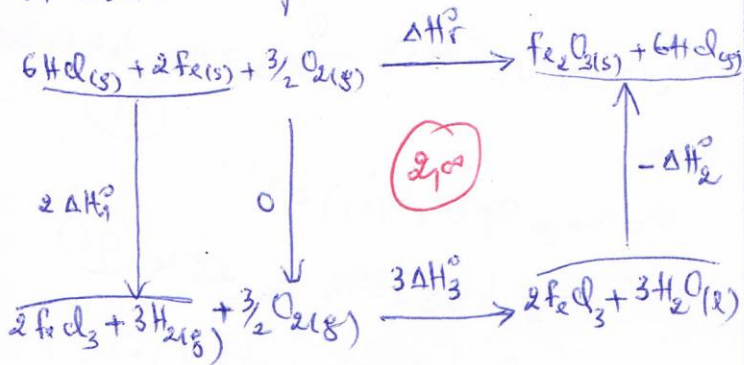 6HCl(g) + 2Fe(s) + 3/2 O2(g) ΔH°r Fe2O3(s) + 6HCl(g)
2ΔH°1 0 2,00 -ΔH°2
2FeCl3 + 3H2(g) + 3/2 O2(g) 3ΔH°3 2FeCl3 + 3H2O(l)